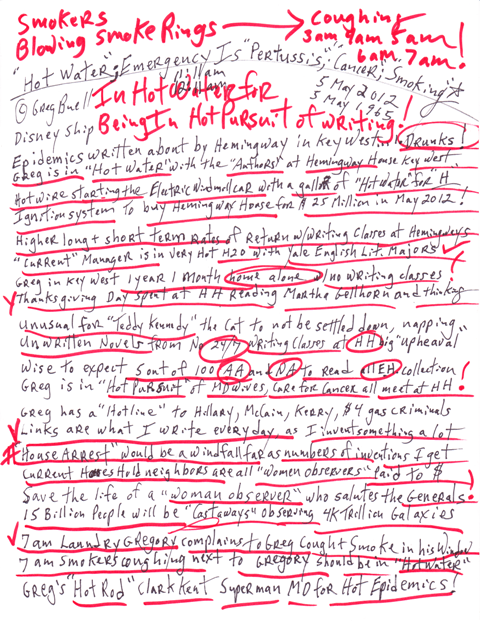 Smokers
Blowing Smoke Rings → Coughing
3am 4am 5am
6am. 7am!
"Hot Water"; Emergency Is "Pertussis"; Cancer; Smoking
© Greg Buell 11:11am 5 May 2012
Disney Ship 5 May 1965
In Hot Water for
Being In Hot Pursuit of writing!
Epidemics written about by Hemingway in Key West Drunks!
Greg is in "Hot Water" with the "Authors" at Hemingway House Key West
Hotwire starting the Electric Windmill car with a gallon of "Hot Water" for "H
Ignition system to buy Hemingway House for $ 25 Million in May 2012!
Higher long + short term Rates of Return w/Writing Classes at Hemingways
"Current" Manager is in very Hot H2O with Yale English Lit. Majors
Greg in Key West 1 year 1 month home alone w/no writing classes!
Thanksgiving Day spent at HH Reading Martha Gellhorn and thinking
Unusual for "Teddy Kennedy" the Cat to not be settled down, napping
Unwritten Novels from No 24/7 writing classes at HH big "upheaval"
Wise to expect 5 out of 100 AA and NA to read all EH collection
Greg is in "Hot Pursuit" of MD wives, Cure for Cancer all meet at HH!
Greg has a "Hotline" to Hillary, McCain, Kerry, $4 gas criminals
Links are what I write everyday as I invent something a lot
"House Arrest" would be a windfall far as numbers of inventions I get
Current Household neighbors are all "Women observers" paid to $
Save the life of a "woman observer" who salutes the Generals!
15 Billion People will be "Castaways" observing 4K Trillion Galaxies
7am Laundry Gregory complains to Greg Cought Smoke in his Window
7am Smokers coughing next to Gregory should be in "Hotwater"
Greg's "Hot Rod" Clark Kent Superman MD for Hot Epidemics!